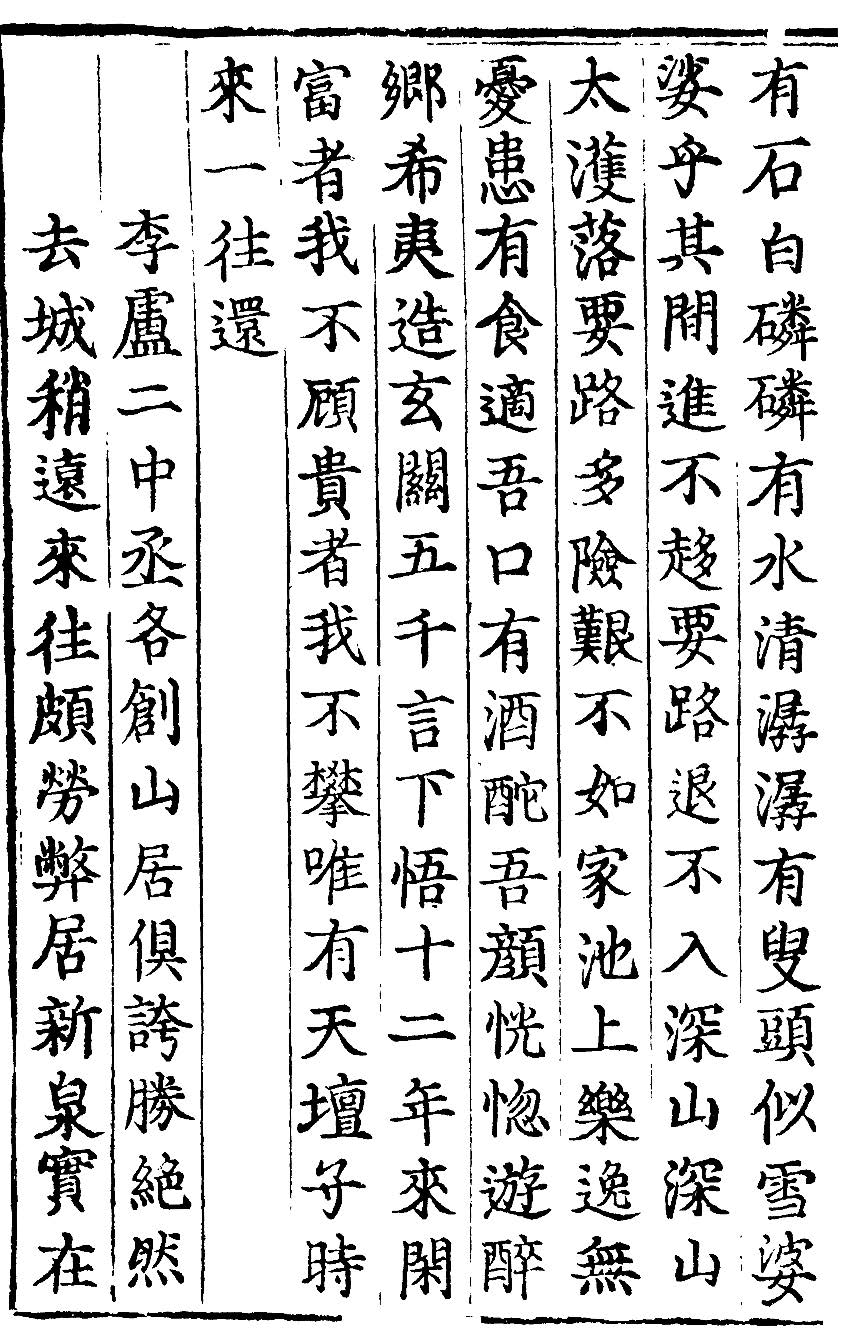 有石白磷磷有水清潺潺有叟頭似雪婆
娑乎其間進不趍要路退不入深山深山
太濩落要路多險艱不如家池上樂逸無
憂患有食適吾口有酒酡吾顔恍惚遊醉
鄉希夷造玄關五千言下悟十二年來閑
富者我不顧貴者我不攀唯有天壇子時
來一往還
李盧二中丞各創山居俱誇勝絶然
去城稍遠來往頗勞弊居新泉實在